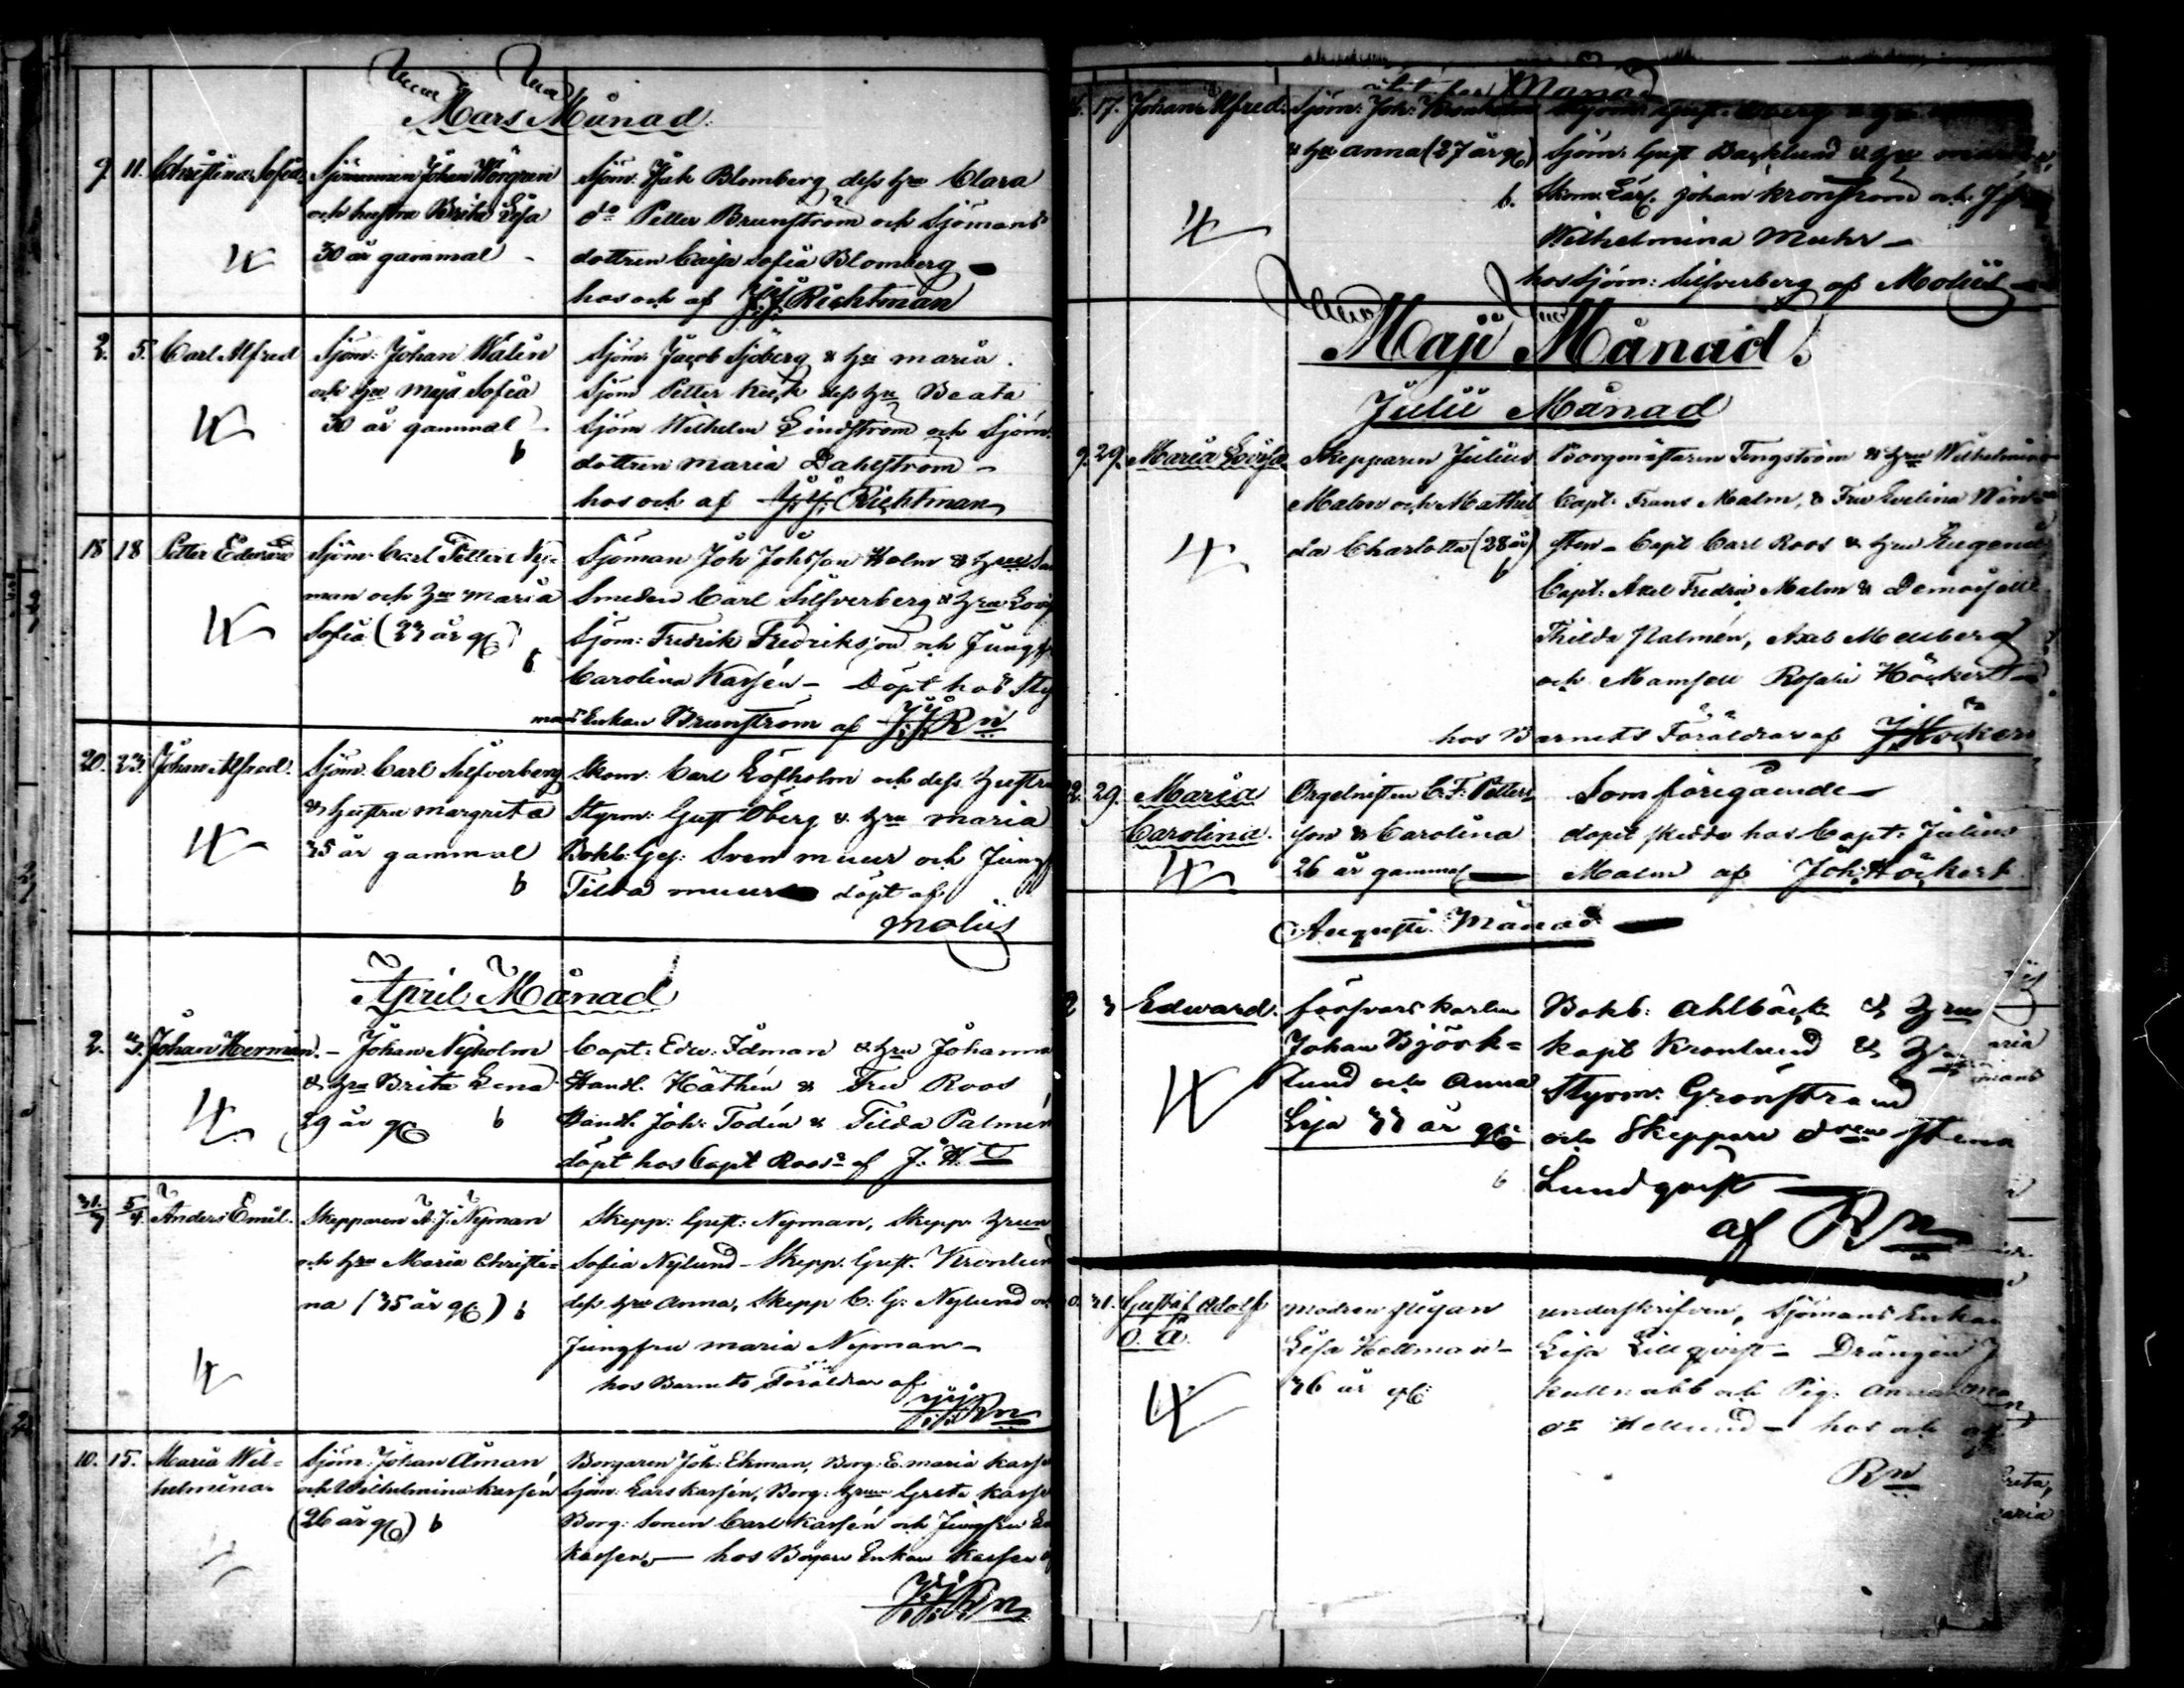 Mars Månad.
9 11. Christina Sofia. Sjömannen Johan Norgren Sjöm. Isak Blomberg dess hu Clara
och hustru Brita Lisa do Petter Brunström och Sjömans
30 år gammal dottren Caisa Sofia Blomberg
hos och af J.J. Richtman
2. 5. Carl Alfred Sjöm: Johan Walin Sjöm Jacob Sjöberg & hu maria
och hu Maja Sofia Sjöm Petter dess hu Beata
30 år gammal Sjöm Wilhelm Lindström och Sjöm.
b dottren maria Dahlström
hos och af J.J. Richtman
18 18 Petter Edward Sjöm. Carl Petter Ny-
man och hu maria Sjöman Joh Johsson Holm & hu
Sofia (33 år gl) Smeden Carl Silfverberg & hu
b Sjöm: Fredrik Fredriksson och Jungf
Carolina Karsén - Döpt hos
Enkan Brunström af J.J. Rn
20. 23. Johan Alfred. Sjöm. Carl Silfverberg Skom. Carl Löfholm och dess hustru
& hustru margreta Styrm: Gust Öberg & hu maria
35 år gammal Bokh: Ges: Sven muur och Jungf
b Tilda muur döpt af
Molin
April Månad
2. 3. Johan Herman. - Johan Nyholm Capt: Edw: Idman & hu Johanna
& hu Brita Lena Handl. Hathén & Fru Roos
39 år gl b Handl. Joh: Todén & Tilda Palmén
döpt hos Capt Roos af J. H.t
31/3 5/4 Anders Emil. Skepparen A. J. Nyman Skepp: Gust: Nyman, Skepp hrun
och hu Maria Christi- Sofia Nylund - Skepp. Gust. Kronlund
na (35 år gl) b dess hu Anna, Skepp C: G: Nylund och
Jungfru maria Nyman
hos Barnets Föräldrar af
J.J. Rn
10. 15. Maria Wil- Sjöm: Johan Åman Borgaren Joh: Ekman, Borg: E. maria Karsé
helmina och Wilhelmina Karsén Sjöm: Lars Karsén, Borg: hrun Greta Karsé
(26 år gl) b Borg: Sonen Carl Karsén och Jungfru
Karsén - hos Borgare Enkan Karsén
J.J. Rn
Månad
17. Johan Alfred. Sjöm: Joh:
& hu anna (27 år gl) Sjöm: Gust Backlund & hu
b. Skom: Lärl. Johan Kronström och
Wilhelmina Muhr
hos Sjöm: Silfverberg af Molin
Maji Månad.
Julii Månad
9. 29. Maria Lovisa Skepparen Julius Borgmästaren Tengström & hru Wilhelmina
Malm och Mathil- Capt: Frans Malm, & Fru Evelina Win-
da Charlotta (28 år) sten - Capt Carl Roos & hru Eugenie
b Capt: Axel Fredric Malm & Demoiselle
Thilda Palmén, Axel Mellberg
och Mamsell Rosalie Höckert
hos Barnets Föräldrar af J. Höckert
22. 29. Maria Organisten C. F. Petters- Som föregående
Carolina. son & Carolina dopet skedde hos Capt: Julius
26 år gammal Malm af Joh: Höckert
Augusti Månad
2 3 Edward. försvarskarlen Bokh: Ahlbäck & hru
Johan Björk- Kapt Kronlund & hru
lund och Anna Styrm: Grönstrand
Lisa 33 år gl: och Skeppare dren Stina
b Lundqvist
af Rn
31. Gustaf Adolf modren pigan underskrifven, Sjömans Enkan
o. ä. Lisa Hellman Lisa Lillqvist - Drängen J
36 år gl: och Pig: Anna
Hellund - hos och af
Rn